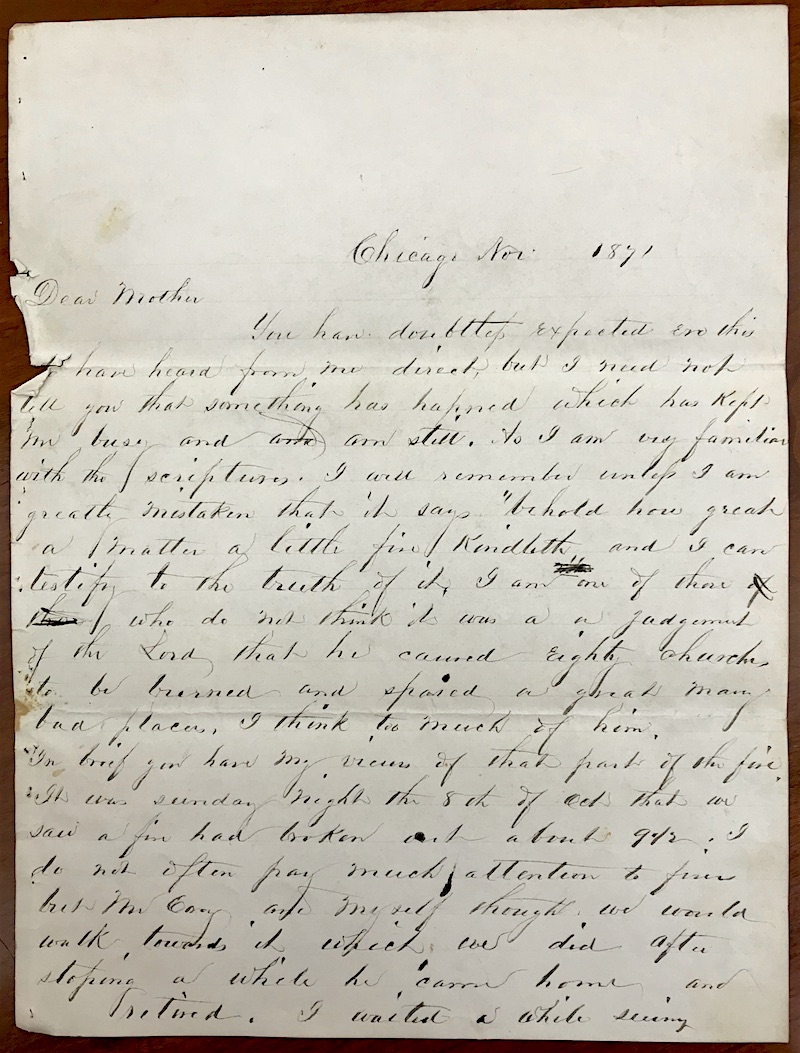 Chicago Nov. 1871
Dear Mother
You have doubtless expected ere this
to have heard from me direct, but I need not
tell you that something has hapned which has kept
me busy and and am still. As I am very familiar
with the scriptures. I will remember unless I am
greatly mistaken that it says "behold how great
a matter a little fire kindleth and I can
testify to the truth of it, I am one of those of
who do not think it was a a judgement
of the Lord that he caused Eighty churches
to be burned and spared a great many
bad places, I think too much of him.
In brief you have my views of that part of the fire.
It was sunday night the 8th of Oct that we
saw a fire had broken out about 9 1/2. I
do not often pay much attention to fires
but Mr and myself though we would
walk towards it which we did after
stoping a while he came home and
retired. I waited a while seeing